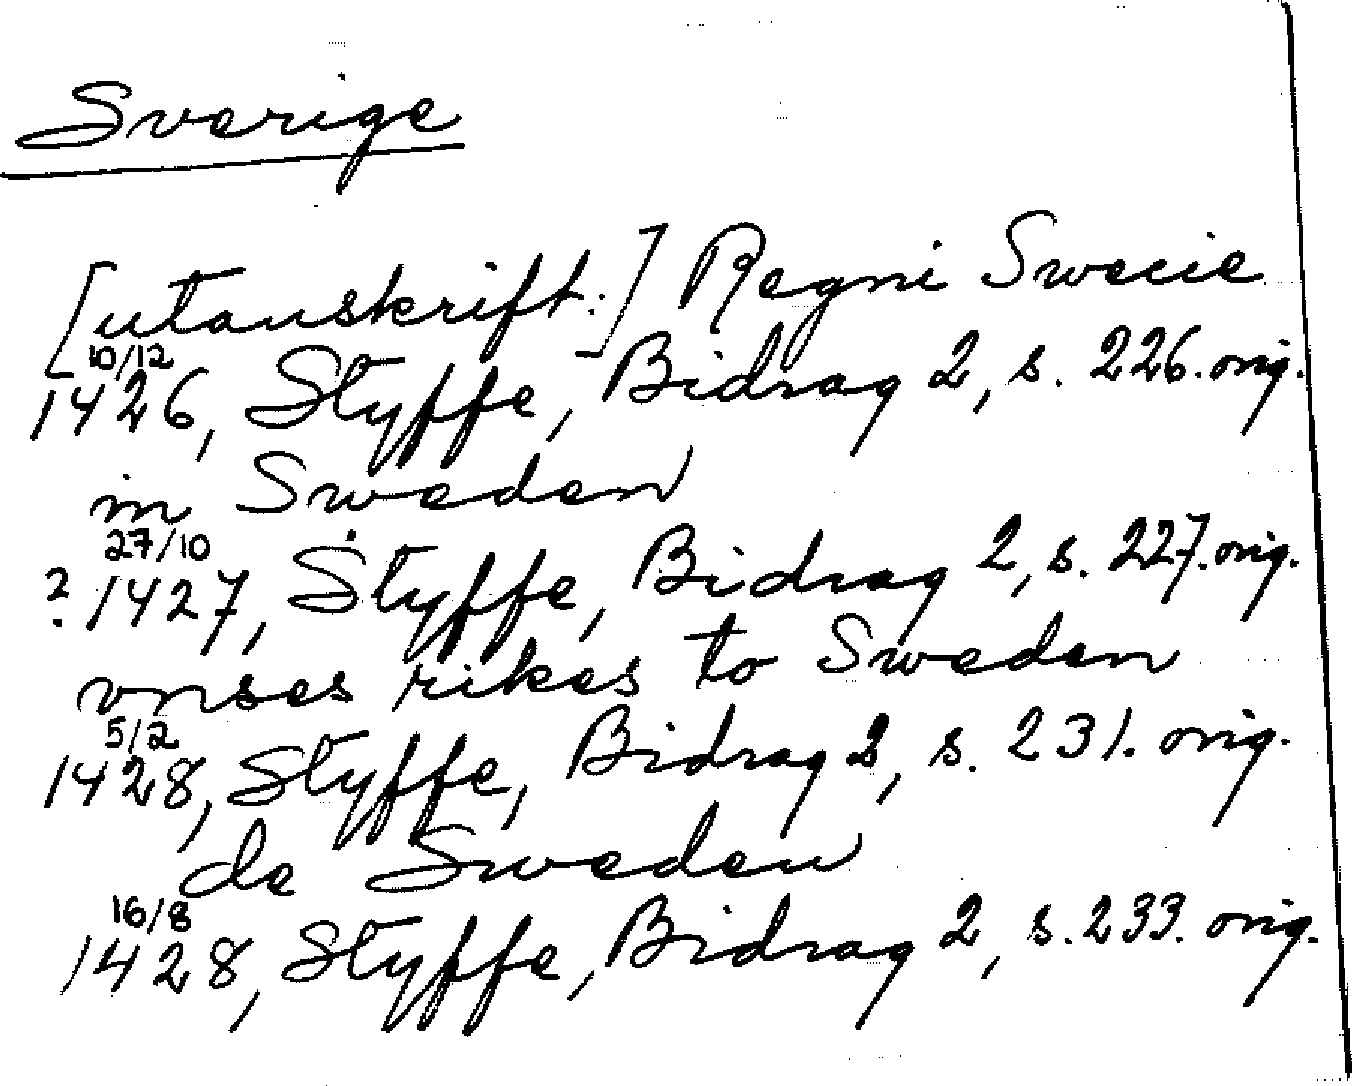 Sverige
[utanskrift:] Regni Swecie
10/12
1426, Styffe, Bidrag 2, s. 226. orig.
in Sweden
27/10
? 1427, Styffe, Bidrag 2, s. 227. orig.
vnses rikes to Sweden
5/2
1428, Styffe, Bidrag 2, s. 231. orig.
de Sweden
16/8
1428, Styffe, Bidrag 2, s. 233. orig.